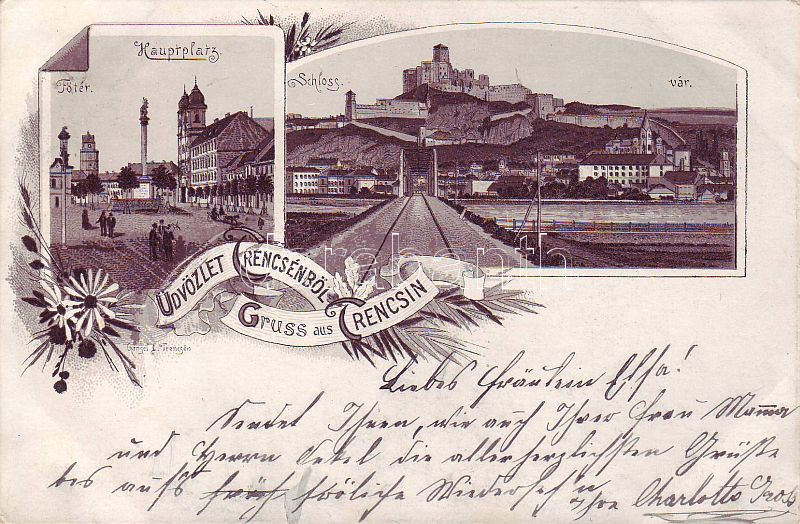 Hauptplatz.
Főtér.
Schloss.
vár.
ÜDVÖZLET TRENCSÉNBŐL
Gruss aus TRENCSIN
Gansel L. Trencsén
darabanth
Liebes Fräulein Elsa!
Sendet Ihnen, wie auch Ihrer Frau Mama
und Herrn die allerherzlichsten Grüße
bis aufs fröliche Wiederseh'n
Ihre Charlotte